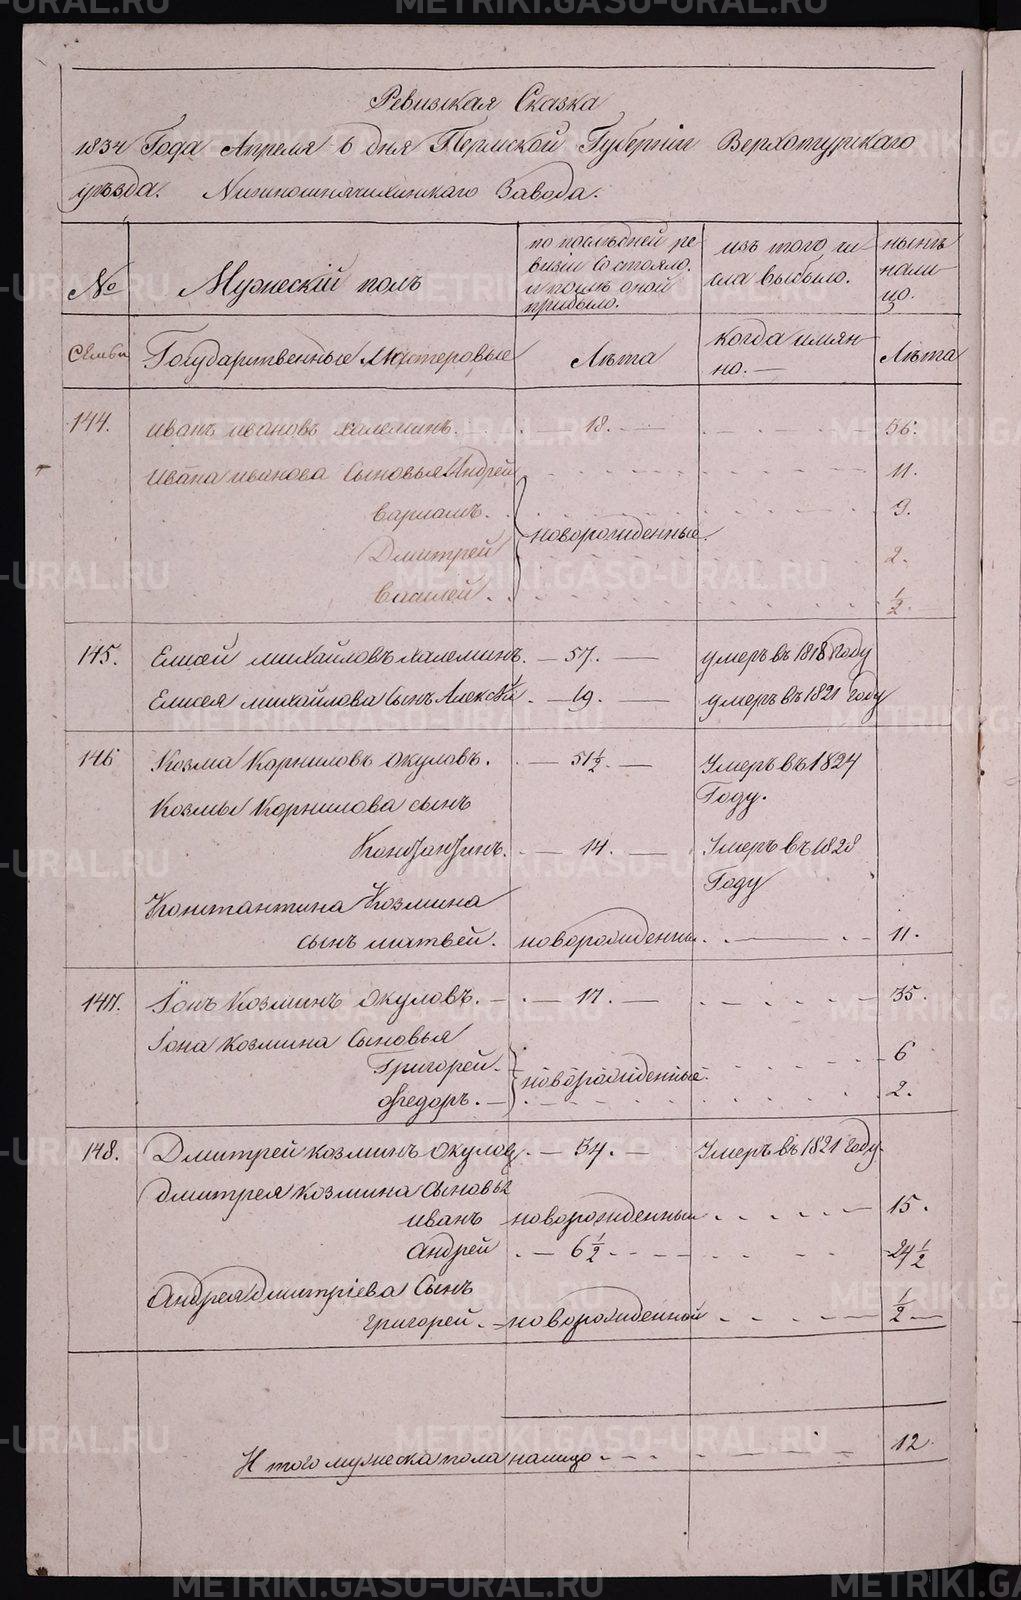 Ревизская Сказка
1834 Года Апреля 6 дня Пермской Губерніи Верхотурскаго
уѣзда. Нижнешнячихинскаго Завода.
№
Мужескій полъ
по послѣдней ре
визіи Состояло.
и послѣ оной
прибыло.
изъ того чи
сла выбыло.
нынѣ
нали
цо.
Семьи
Государственные Мастеровые
Лѣта
когда имян
но. —
Лѣта
144. Иванъ ивановъ халеминъ. — 18. — 56.
Ивана иванова Сыновья Андрей 11.
варламъ. 9.
новорожденные.
Дмитрей 2.
василей. ½
145. Елисей михайловъ халеминъ. — 57. — умеръ въ 1818 году
Елисея михайлова Сынъ Алексѣй — 19. — умеръ въ 1821 году
146 Козма Корниловъ окуловъ. — 51½. — Умеръ въ 1824
Году.
Козмы Корнилова сынъ
Констянтинъ. — 14. — Умеръ въ 1828
Году
Константина Козмина
сынъ матвей. новорожденны. 11.
147. Іонъ Козминъ окуловъ. — 17. — 35.
Іона козмина Сыновья
Григорей. 6
новорожденные.
Федоръ. 2.
148. Дмитрей козминъ окуловъ. — 34. — Умеръ въ 1821 году.
Дмитрея козмина Сыновья
иванъ новорожденный 15.
андрей — 6½ 24½
Андрея дмитріева Сынъ
григорей. — новорожденной ½
Итого мужеска пола налицо 12.
METRIKI.GASO-URAL.RU